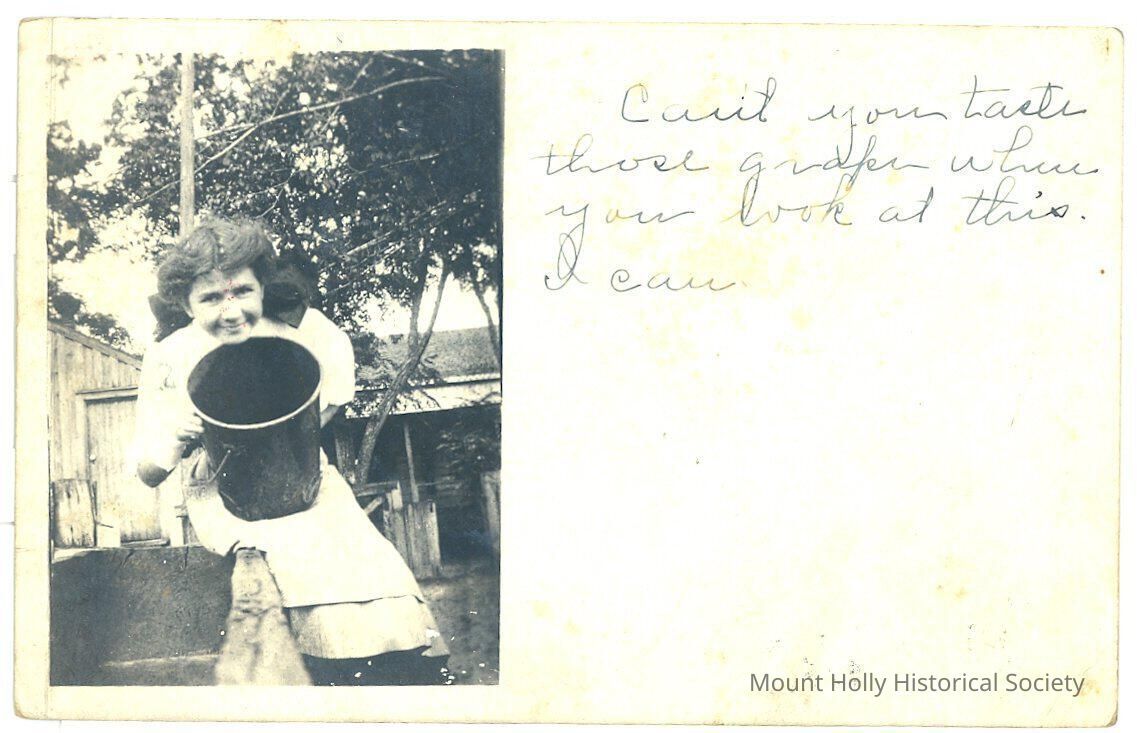 Can't you taste
those grapes when
you look at this.
I can.
Mount Holly Historical Society